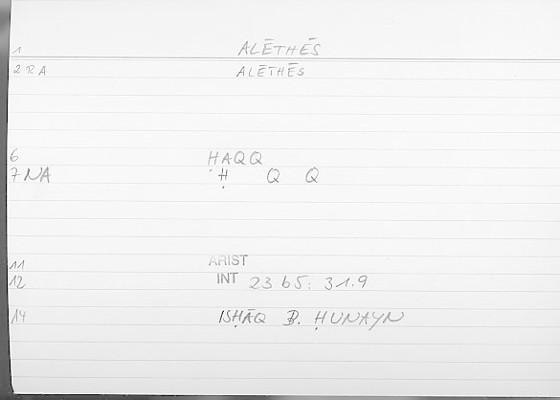 1 ALĒTHḖS
2 RA ALĒTHḖS
6 HAQQ
7 NA Ḥ Q Q
11 ARIST
12 INT 23 b5: 31.9
14 ISḤĀQ B. ḤUNAYN